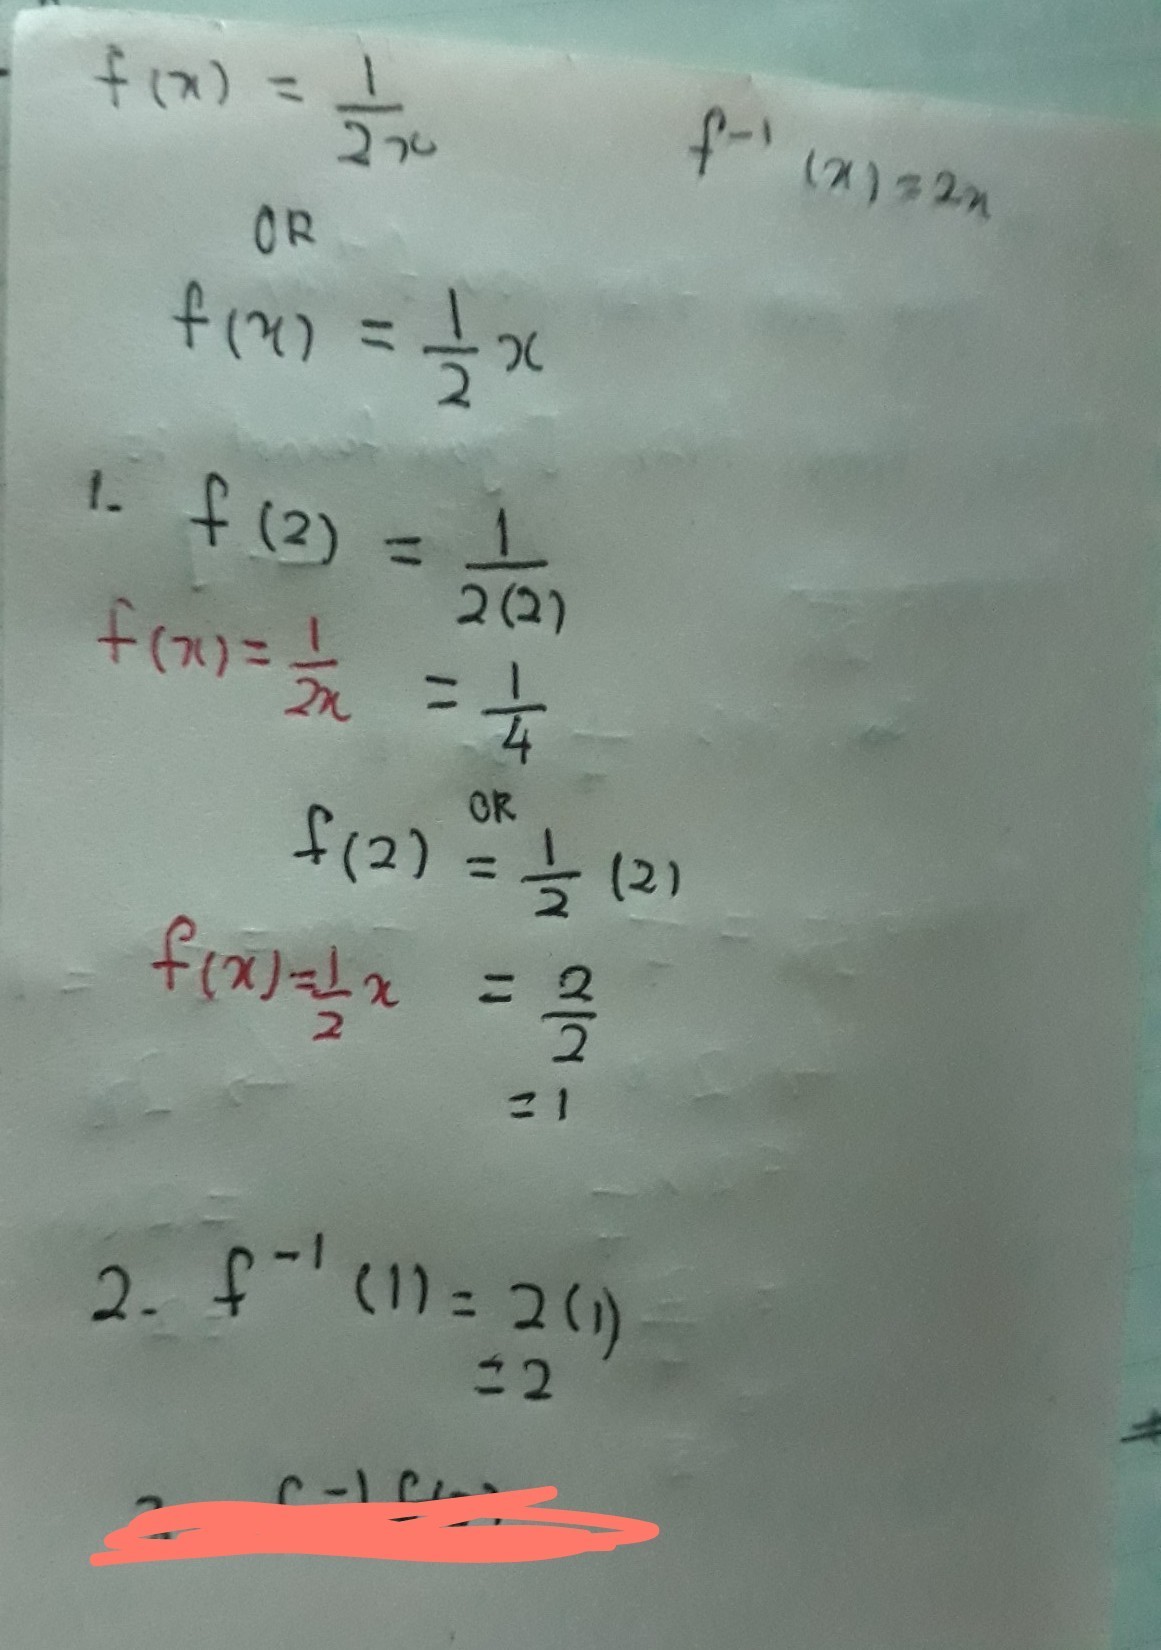 f(x) = 1/2x
f⁻¹(x) = 2x
OR
f(x) = 1/2 x
1. f(2) = 1/2(2)
f(x) = 1/2x
= 1/4
OR
f(2) = 1/2 (2)
f(x) = 1/2 x
= 2/2
= 1
2. f⁻¹(1) = 2(1)
= 2